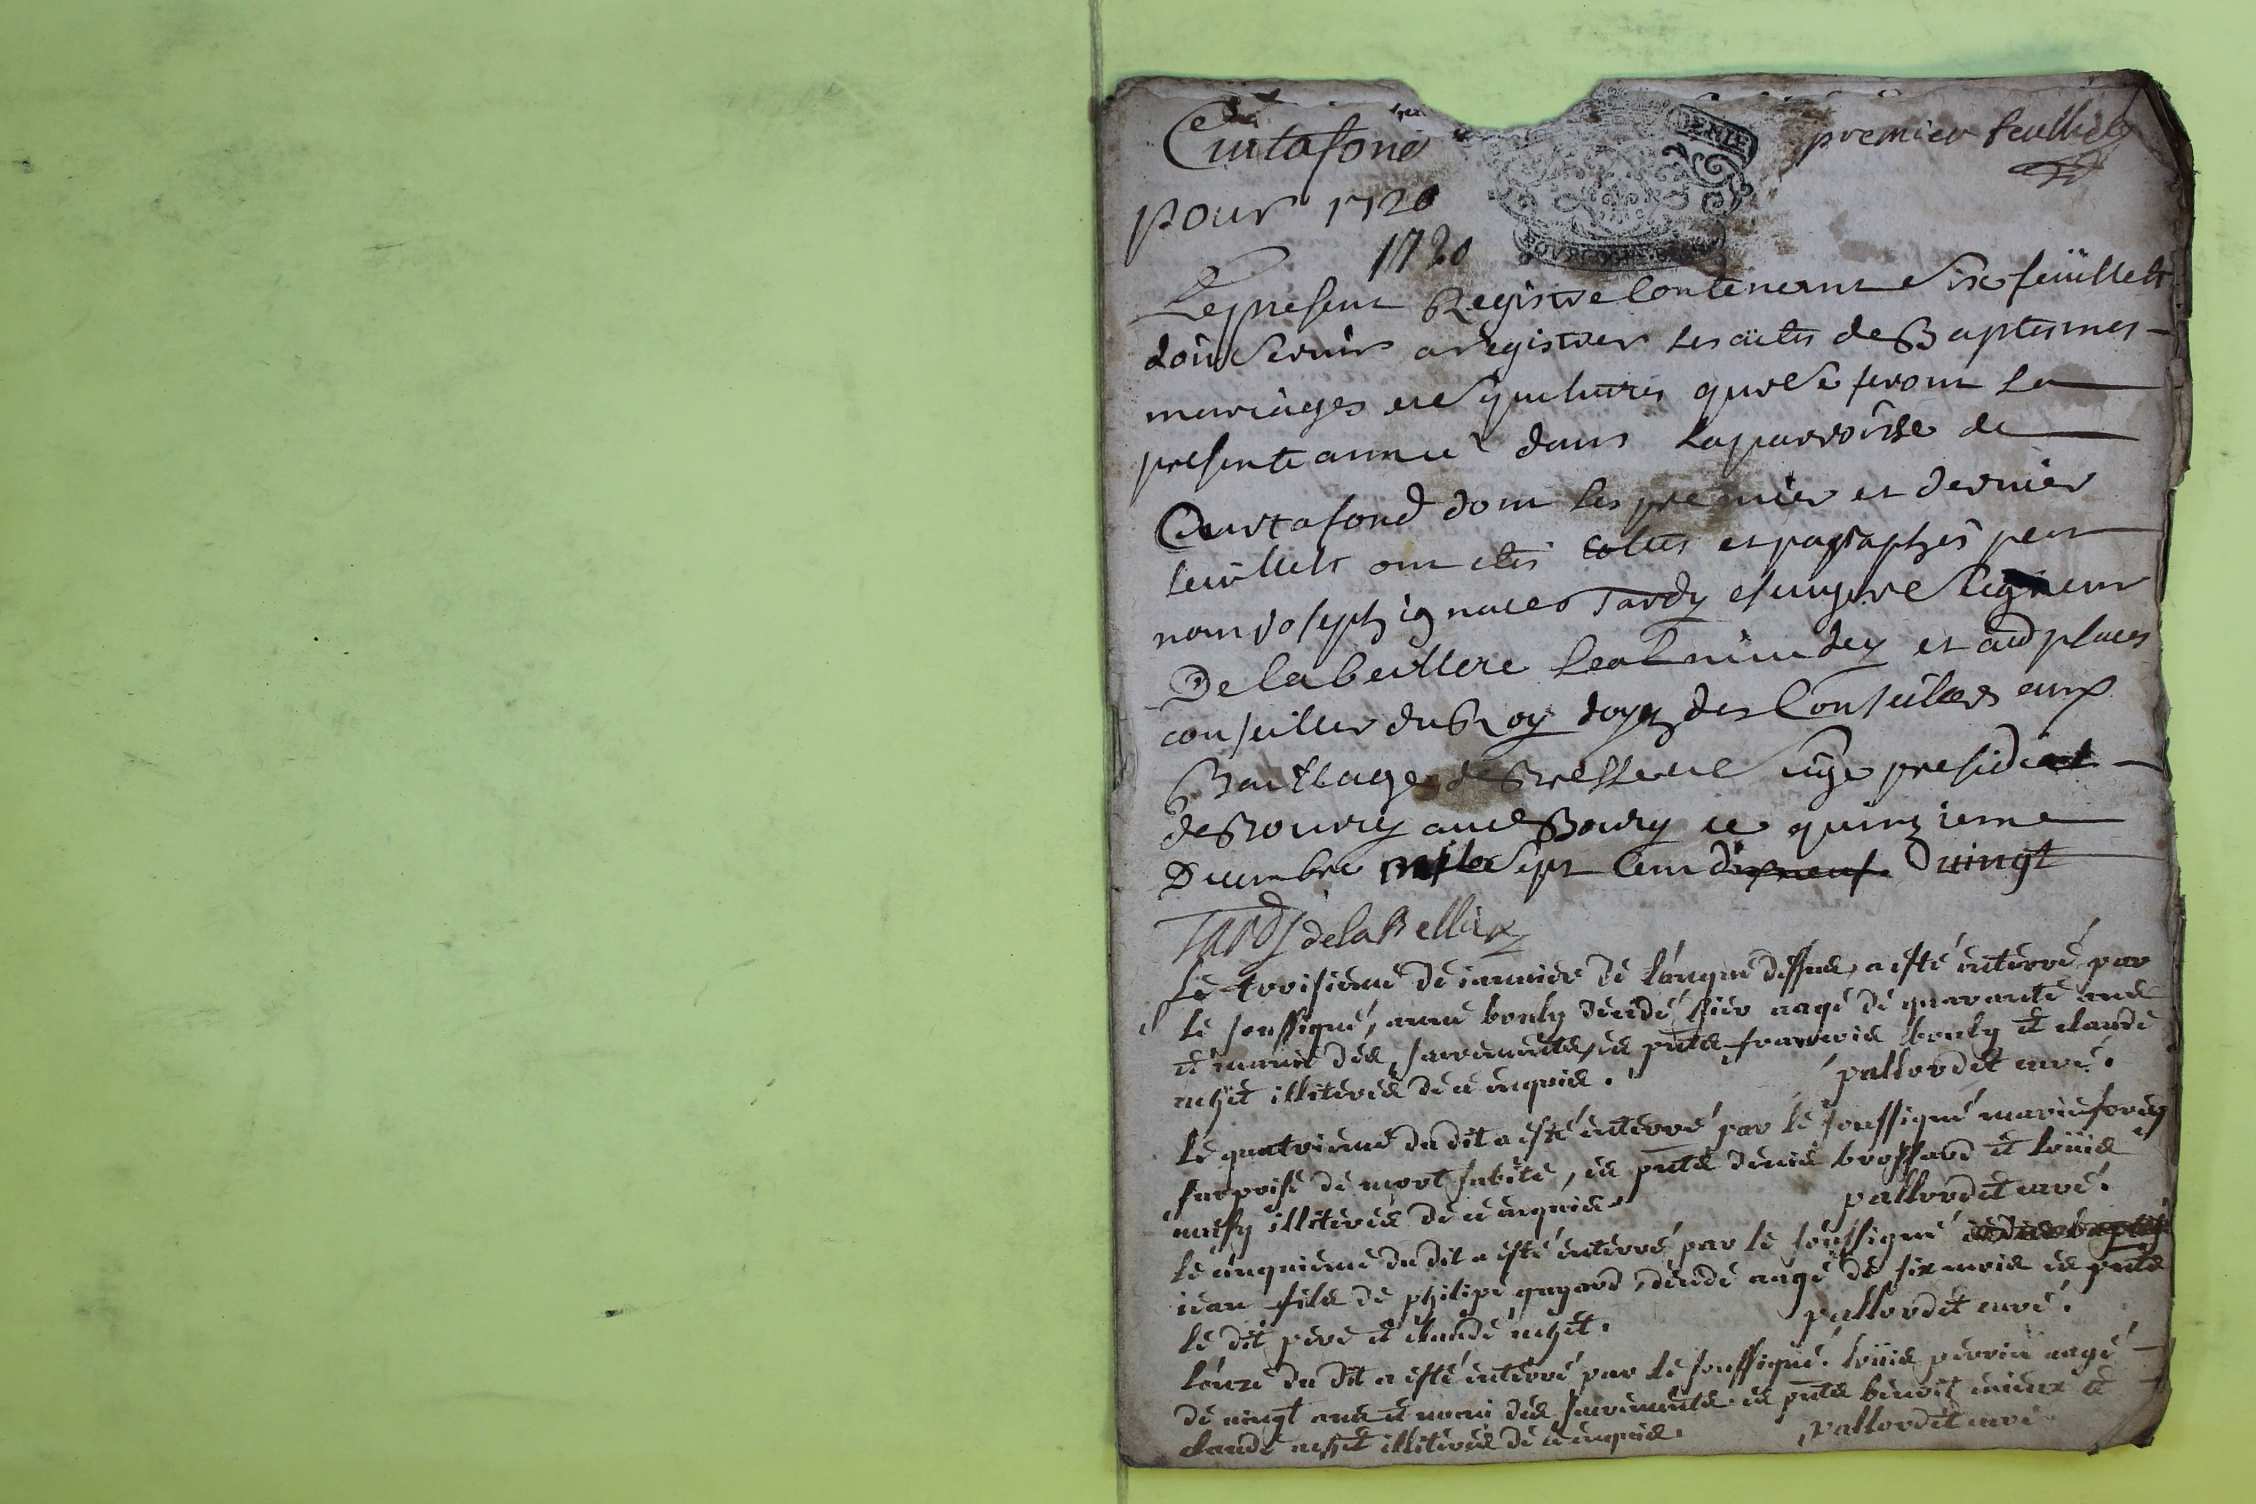 Curtafond
premier feulliet
pour 1720
1720
Le present Registre Contenant Six feüillets
doit Servir a registrer les actes de Baptesmes
mariages et Sepultures qui Se feront La
presente année dans la parroisse de
Curtafond dont les premier et dernier
feuillets ont etés cottés et paraphés par
nous joseph ignace Tardy escuyer Seigneur
De la belliere et aud places
conseiller du Roy doyen des Conseillers aux
Bailliage de Bresse et Siege presidial
de Bourg aud Bourg ce quinzieme
Decembre mille Sept Cent dixneuf vingt
Tardy de la Bellière
le troisieme de ianvier de l'anque dessus, a esté enterré par
le soussigné, anne bouly décédé hier aagé de quarante ans
et munie des sacrements, es pnts francois bouly et claude
nallet illiterés de ce enquis. pallordet curé.
le quatrieme du dit a esté enterré par le soussigné marie forey
surprise de mort subite, es pnts denis brossard et loüis
illiterés de ce enquis pallordet curé.
le cinquieme du dit a esté enterré par le soussigné
iean fils de philipe gayard, décédé aagé de six mois es pnts
le dit pere et claude nallet. pallordet curé.
l'onze du dit a esté enterré par le soussigné loüis perrin aagé
de vingt ans et muni des sacrements es pnts benoit et
claude nallet illiterés de ce enquis. pallordet curé